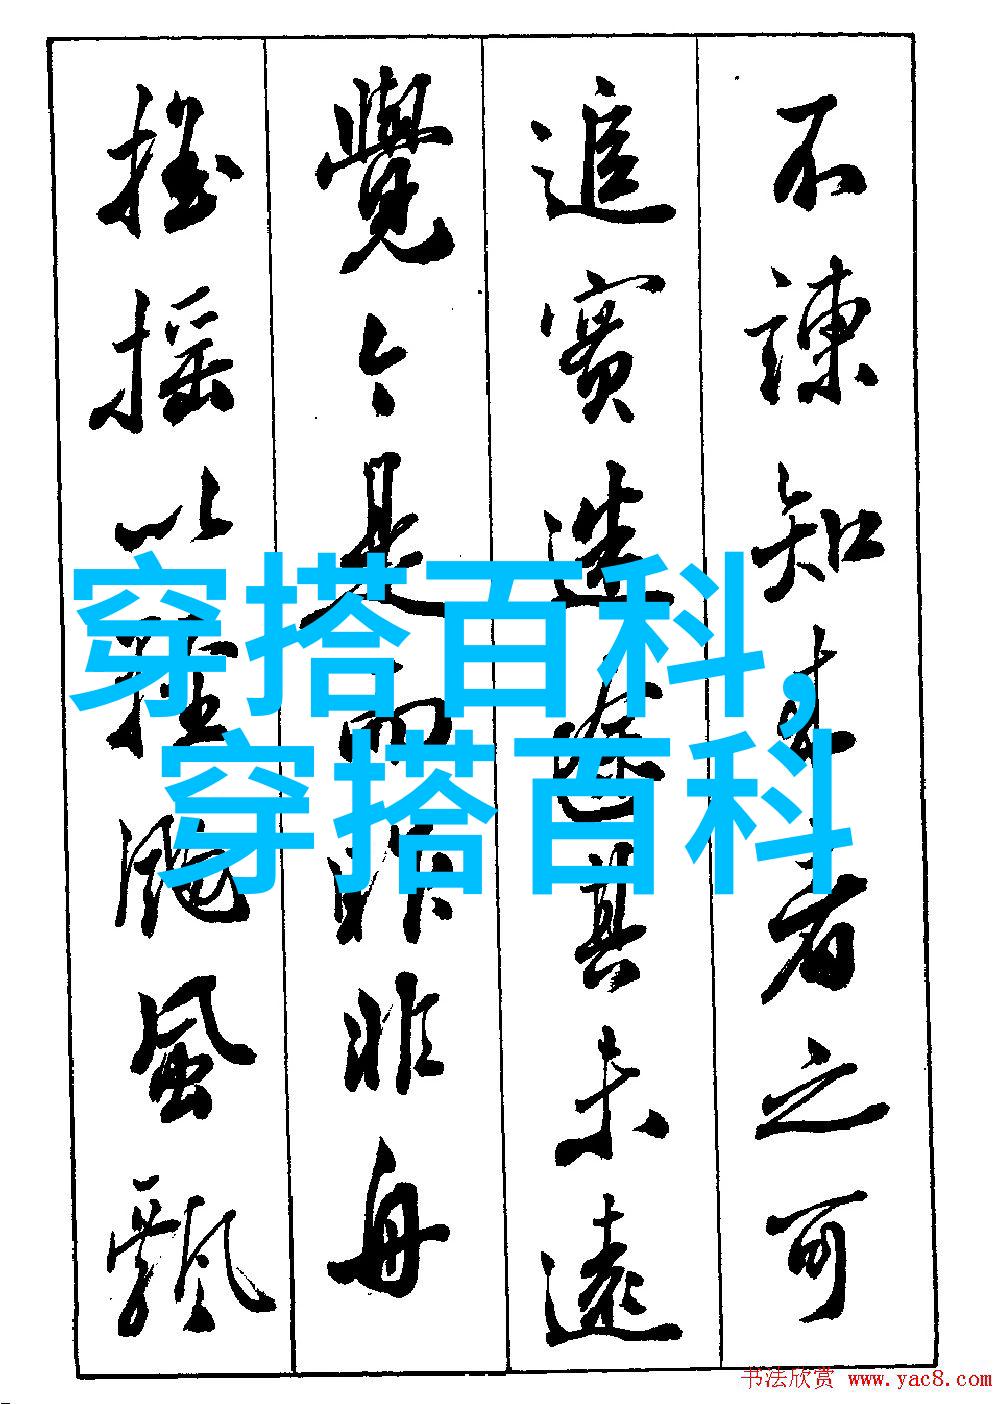 不諫知来者之可
追實迷途其未遠
覺今是而昨非舟
摇摇以輕飏風飄
穿搭百科,
穿搭百科
书法欣赏 www.yac8.com